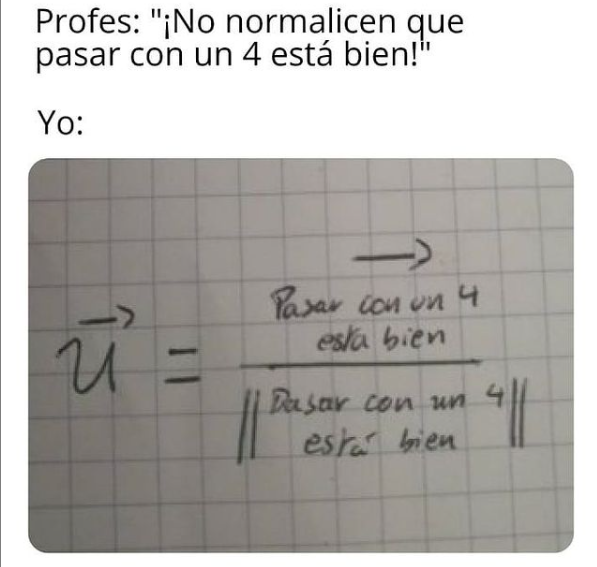 Profes: "¡No normalicen que
pasar con un 4 está bien!"
Yo:
→
Pasar con un 4
esta bien
→
u =
|| Pasar con un 4 ||
está bien